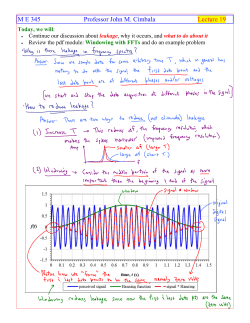 M E 345 Professor John M. Cimbala Lecture 19
Today, we will:
• Continue our discussion about leakage, why it occurs, and what to do about it
• Review the pdf module: Windowing with FFTs and do an example problem
• Why is there leakage in frequency spectra?
Answer: Since we sample data for some arbitrary time T, which in general has
nothing to do with the signal, the first data point and the
last data point are at different phases and/or voltages
(we start and stop the data acquisition at different phases in the signal)
• How to reduce leakage?
Answer: There are two ways to reduce (not eliminate) leakage
(1) Increase T → This reduces Δf, the frequency resolution, which
makes the spikes "narrower" (improved frequency resolution)
Amp
smaller Δf (large T)
large Δf (short T)
f
(2) Windowing → Consider the middle portion of the signal as more
important than the beginning & end of the signal
window
signal × window
original
digital
signal
f(t)
1.5
1
0.5
0
-0.5
-1
-1.5
0 0.1 0.2 0.3 0.4 0.5 0.6 0.7 0.8 0.9 1 1.1 1.2 1.3 1.4 1.5
time, t (s)
perceived signal Hanning function signal * Hanning
Notice how we "force" the
first & last data points to be the same, namely zero volts
Windowing reduces leakage since now the first & last data pts are the same
(zero volts)